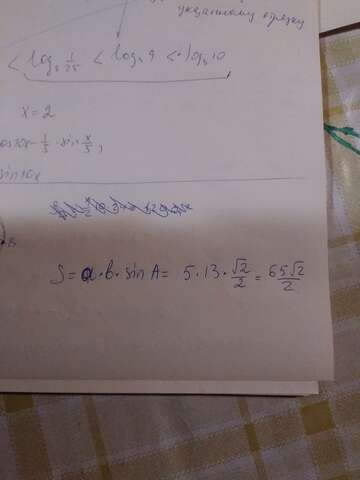 указанному отрезку
< log₂ 1/25 < log₂ 9 < log₂ 10
x = 2
cos10x - 1/3 · sin x/3,
sin10x
B
S = a · b · sin A = 5 · 13 · √2/2 = 65√2/2